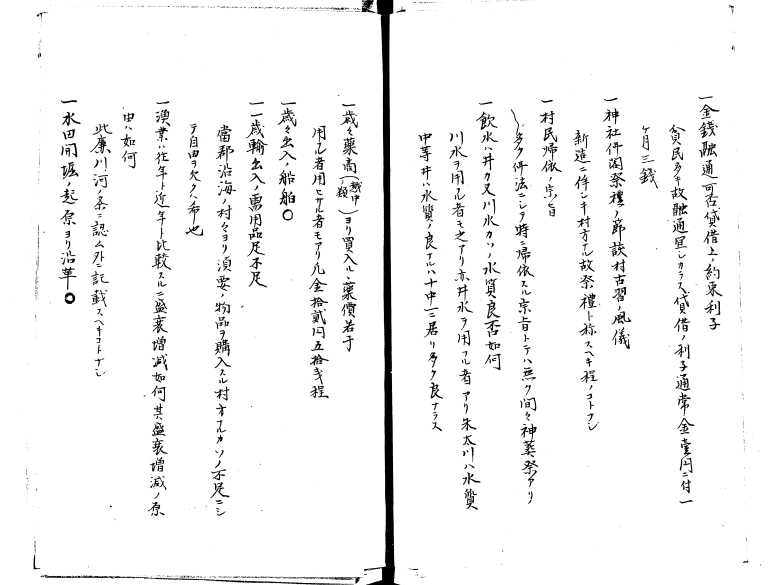 一金錢融通可否貸借上ノ約束利子
貧民多キ故融通宜シカラス貸借ノ利子通常金壹円ニ付一
ヶ月三錢
一神社仏閣祭禮ノ節該村古習ノ風儀
新造ニ伴シキ村方ナル故祭禮ト称スヘキ程ノコトナシ
一村民帰依ノ宗旨
多ク仏法ニシテ時ニ帰依スル宗旨トテハ無ク間々神葬祭アリ
一飲水ハ井カ又川水カソノ水質良否如何
川水ヲ用フル者モ之アリ亦井水ヲ用フル者アリ朱太川ハ水質
中等井ハ水質ノ良ナルハ十中一ニ居リ多ク良ナラス
一歳々藥商(越中類)ヨリ買入ル藥價若干
用フル者用ヒサル者モアリ凡金拾貳円五拾錢程
一歳々出入ノ船舶〇
一歳輸出入ノ需用品足不足
當郡沿海ノ村々ヨリ須要ノ物品ヲ購入スル村方ナルカソノ不足ニシ
テ自由ヲ欠ク希也
一漁業ハ往年ト近年ト比較スルニ盛衰増減如何其盛衰増減ノ原
由ハ如何
此廉川河ノ条ニ認ム外ニ記載スヘキコトナシ
一水田開墾ノ起原ヨリ沿革〇